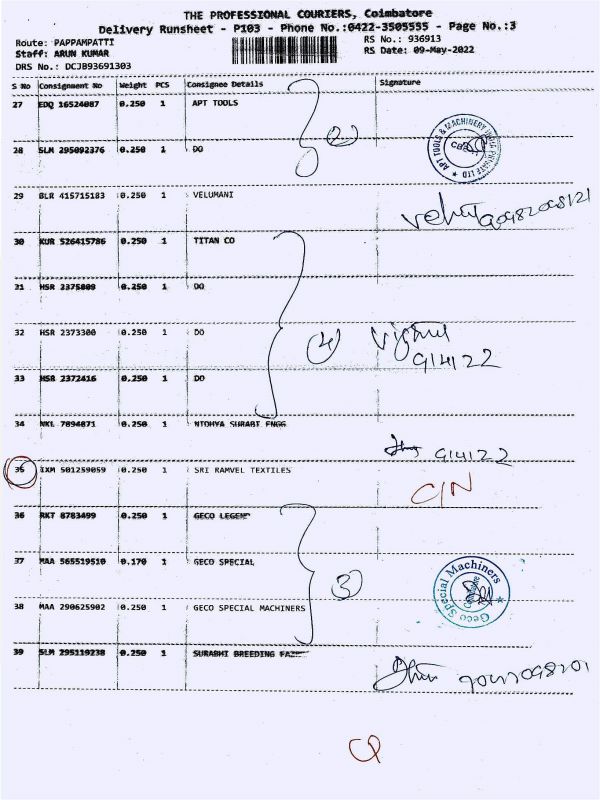 THE PROFESSIONAL COURIERS, Coimbatore
Delivery Runsheet - P103 - Phone No.:0422-3505555 - Page No.:3
Route: PAPPAMPATTI
RS No.: 936913
Staff: ARUN KUMAR
RS Date: 09-May-2022
DRS No.: DCJB93691303
S No Consignment No Weight PCS Consignee Details Signature
27 EDQ 16524087 0.250 1 APT TOOLS
2
28 SLM 295092376 0.250 1 DO
APT TOOLS & MACHINERY INDIA PRIVATE LTD
29 BLR 415715183 0.250 1 VELUMANI
30 KUR 526415786 0.250 1 TITAN CO
31 HSR 2375809 0.250 1 DO
32 HSR 2373300 0.250 1 DO
4
914122
33 HSR 2372416 0.250 1 DO
34 NKL 7894871 0.250 1 NTDHYA SURABI ENGG
914122
35 IXM 501259059 0.250 1 SRI RAMVEL TEXTILES
C/N
36 RKT 8783499 0.250 1 GECO LEGEND
37 MAA 565519510 0.170 1 GECO SPECIAL
3
Geco Special Machiners
Coimbatore
38 MAA 290625902 0.250 1 GECO SPECIAL MACHINERS
39 SLM 295119238 0.250 1 SURABHI BREEDING